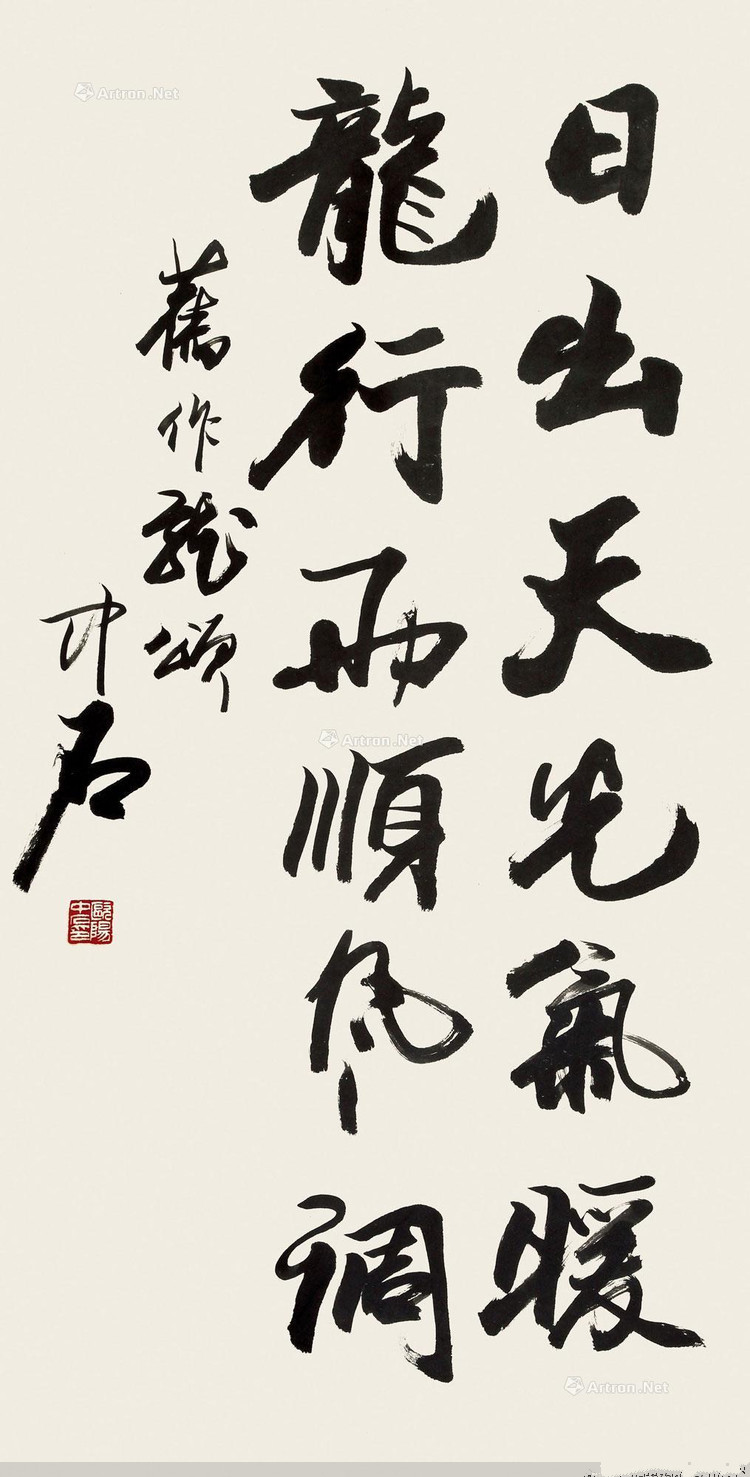 日出天光氣暖
龍行雨順風調
舊作龍頌
中石
歐陽
中石印
Artron.Net
Artron.Net
Artron.Net